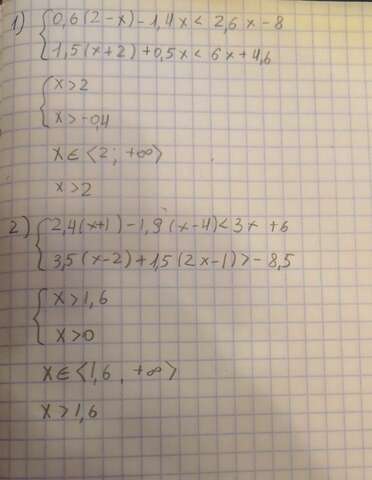 1) { 0,6(2-x)-1,4x < 2,6x-8
1,5(x+2)+0,5x < 6x+4,6
{ x>2
x>-0,4
x∈⟨2; +∞⟩
x>2
2) { 2,4(x+1)-1,9(x-4)<3x+6
3,5(x-2)+1,5(2x-1)>-8,5
{ x>1,6
x>0
x∈⟨1,6, +∞⟩
x>1,6